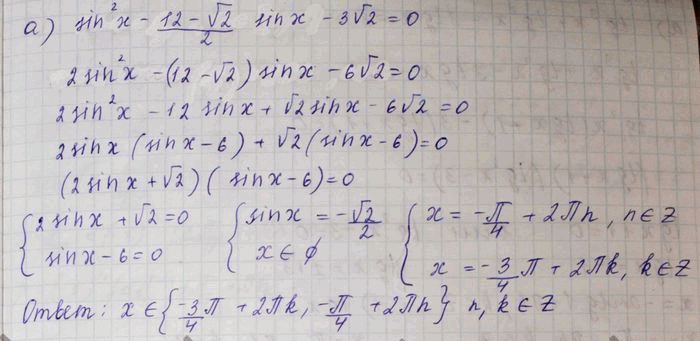 а) sin²x - (12-√2)/2 sinx - 3√2 = 0
2sin²x - (12-√2) sinx - 6√2 = 0
2sin²x - 12 sinx + √2 sinx - 6√2 = 0
2sinx (sinx - 6) + √2 (sinx - 6) = 0
(2sinx + √2) (sinx - 6) = 0
{ 2sinx + √2 = 0 { sinx = -√2/2 { x = -π/4 + 2πn, n ∈ Z
sinx - 6 = 0 x ∈ ∅ x = -3/4 π + 2πk, k ∈ Z
Ответ: x ∈ {-3/4 π + 2πk, -π/4 + 2πn} n, k ∈ Z